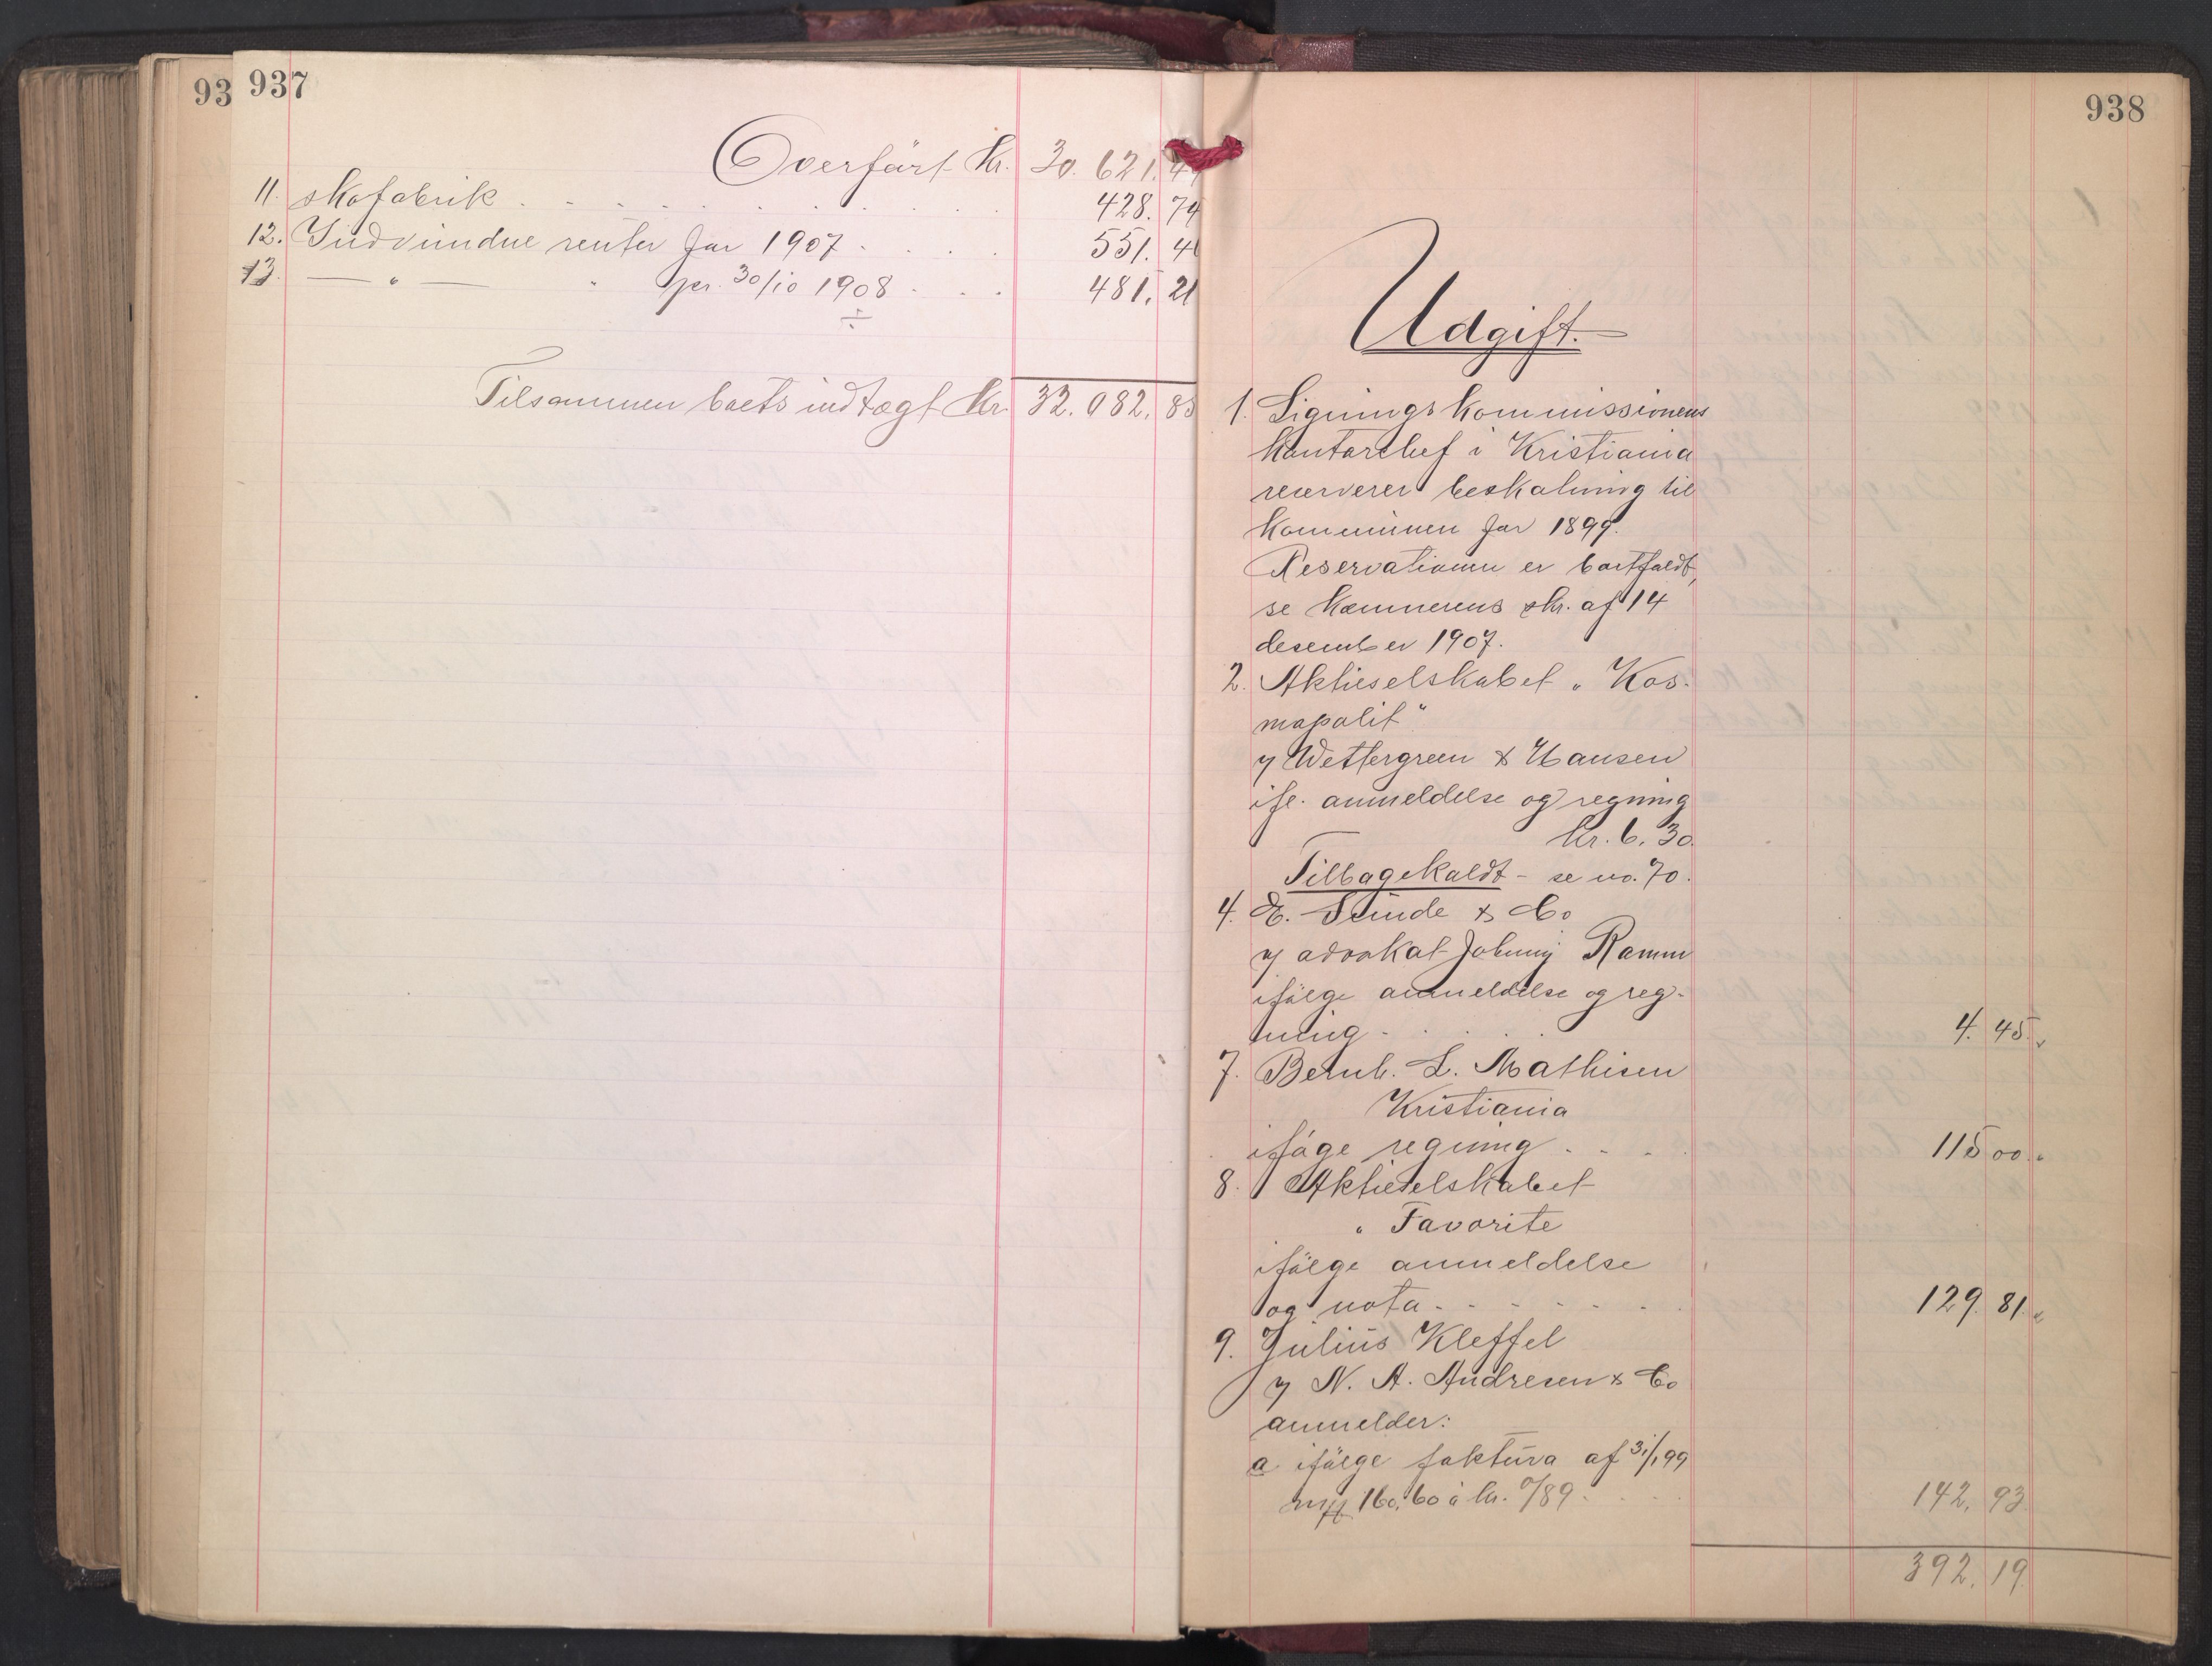 93 937
Overført Kr. 30.621.4
11. skofabrik . . . . . . . . . 428.74
12. Indvundne renter for 1907 . . . . 551.4
13. — " — " pr. 30/10 1908 . . . 481.21
÷
Tilsammen boets indtægt Kr. 32.082.8
938
Udgift.
1. Ligningskommissionens
kontorchef i Kristiania
reserverer beskatning til
kommunen for 1899.
Reservationen er bortfaldt,
se kæmnerens skr. af 14
desember 1907.
2. Aktieselskabet „Kos-
mopolit“
v/ Wettergreen & Hansen
ifl. anmeldelse og regning
kr. 6.30
Tilbagekaldt - se no. 70.
4. E. Sunde & Co
v/ advokat Johnny Ramm
ifølge anmeldelse og reg-
ning . . . . . 4.45
7. Bernh. L. Mathisen
Kristiania
ifølge regning . . . . 115 00
8. Aktieselskabet
„Favorite
ifølge anmeldelse
og nota . . . . . . . 129.81
9. Julius Kleffel
v/ N. A. Andresen & Co
anmelder:
a ifølge faktura af 31/1 99
160.60 à kr. 0/89 . . . . 142.93
392.19